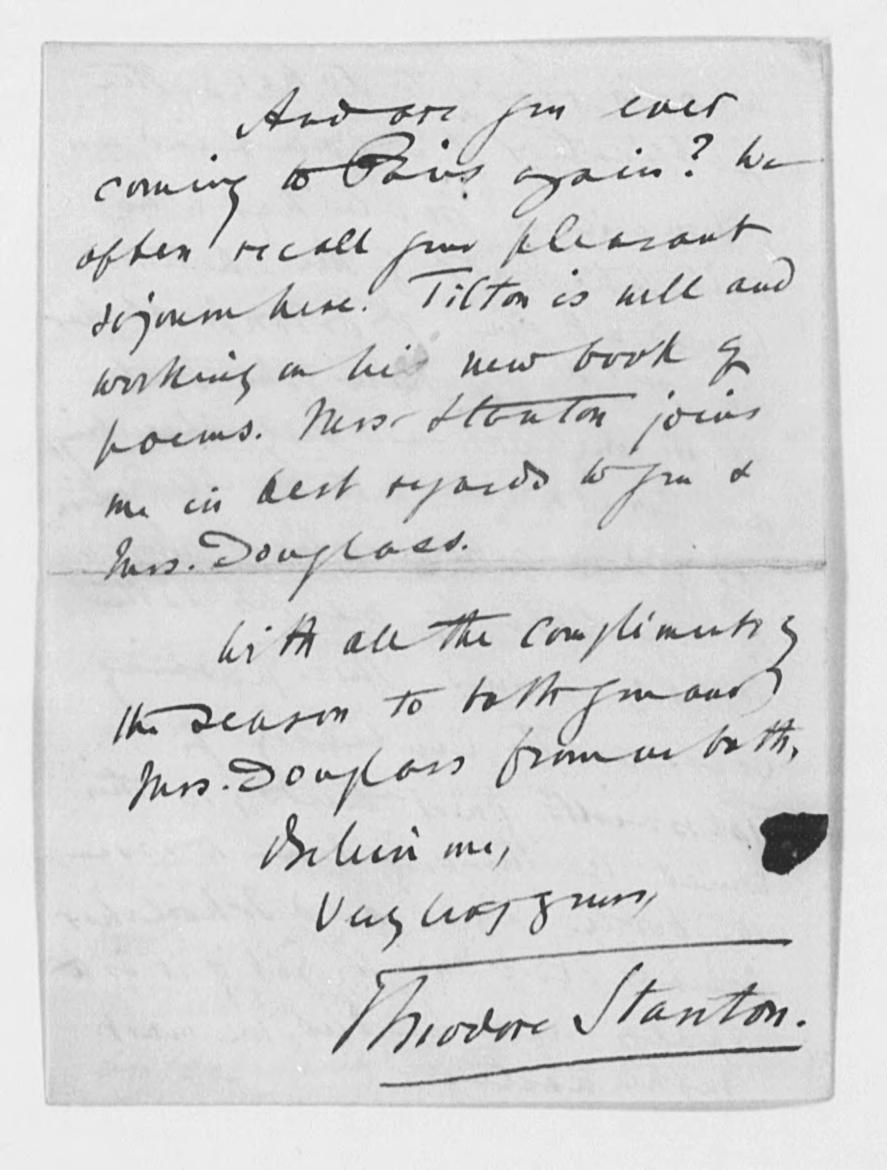 And are you ever
coming to Paris again? We
often recall your pleasant
sojourn here. Tilton is well and
working on his new book of
poems. Mrs. Stanton joins
me in best regards to you &
Mrs. Douglass.
With all the compliments of
the season to both you and
Mrs. Douglass from us both,
Believe me,
Very truly yours,
Theodore Stanton.